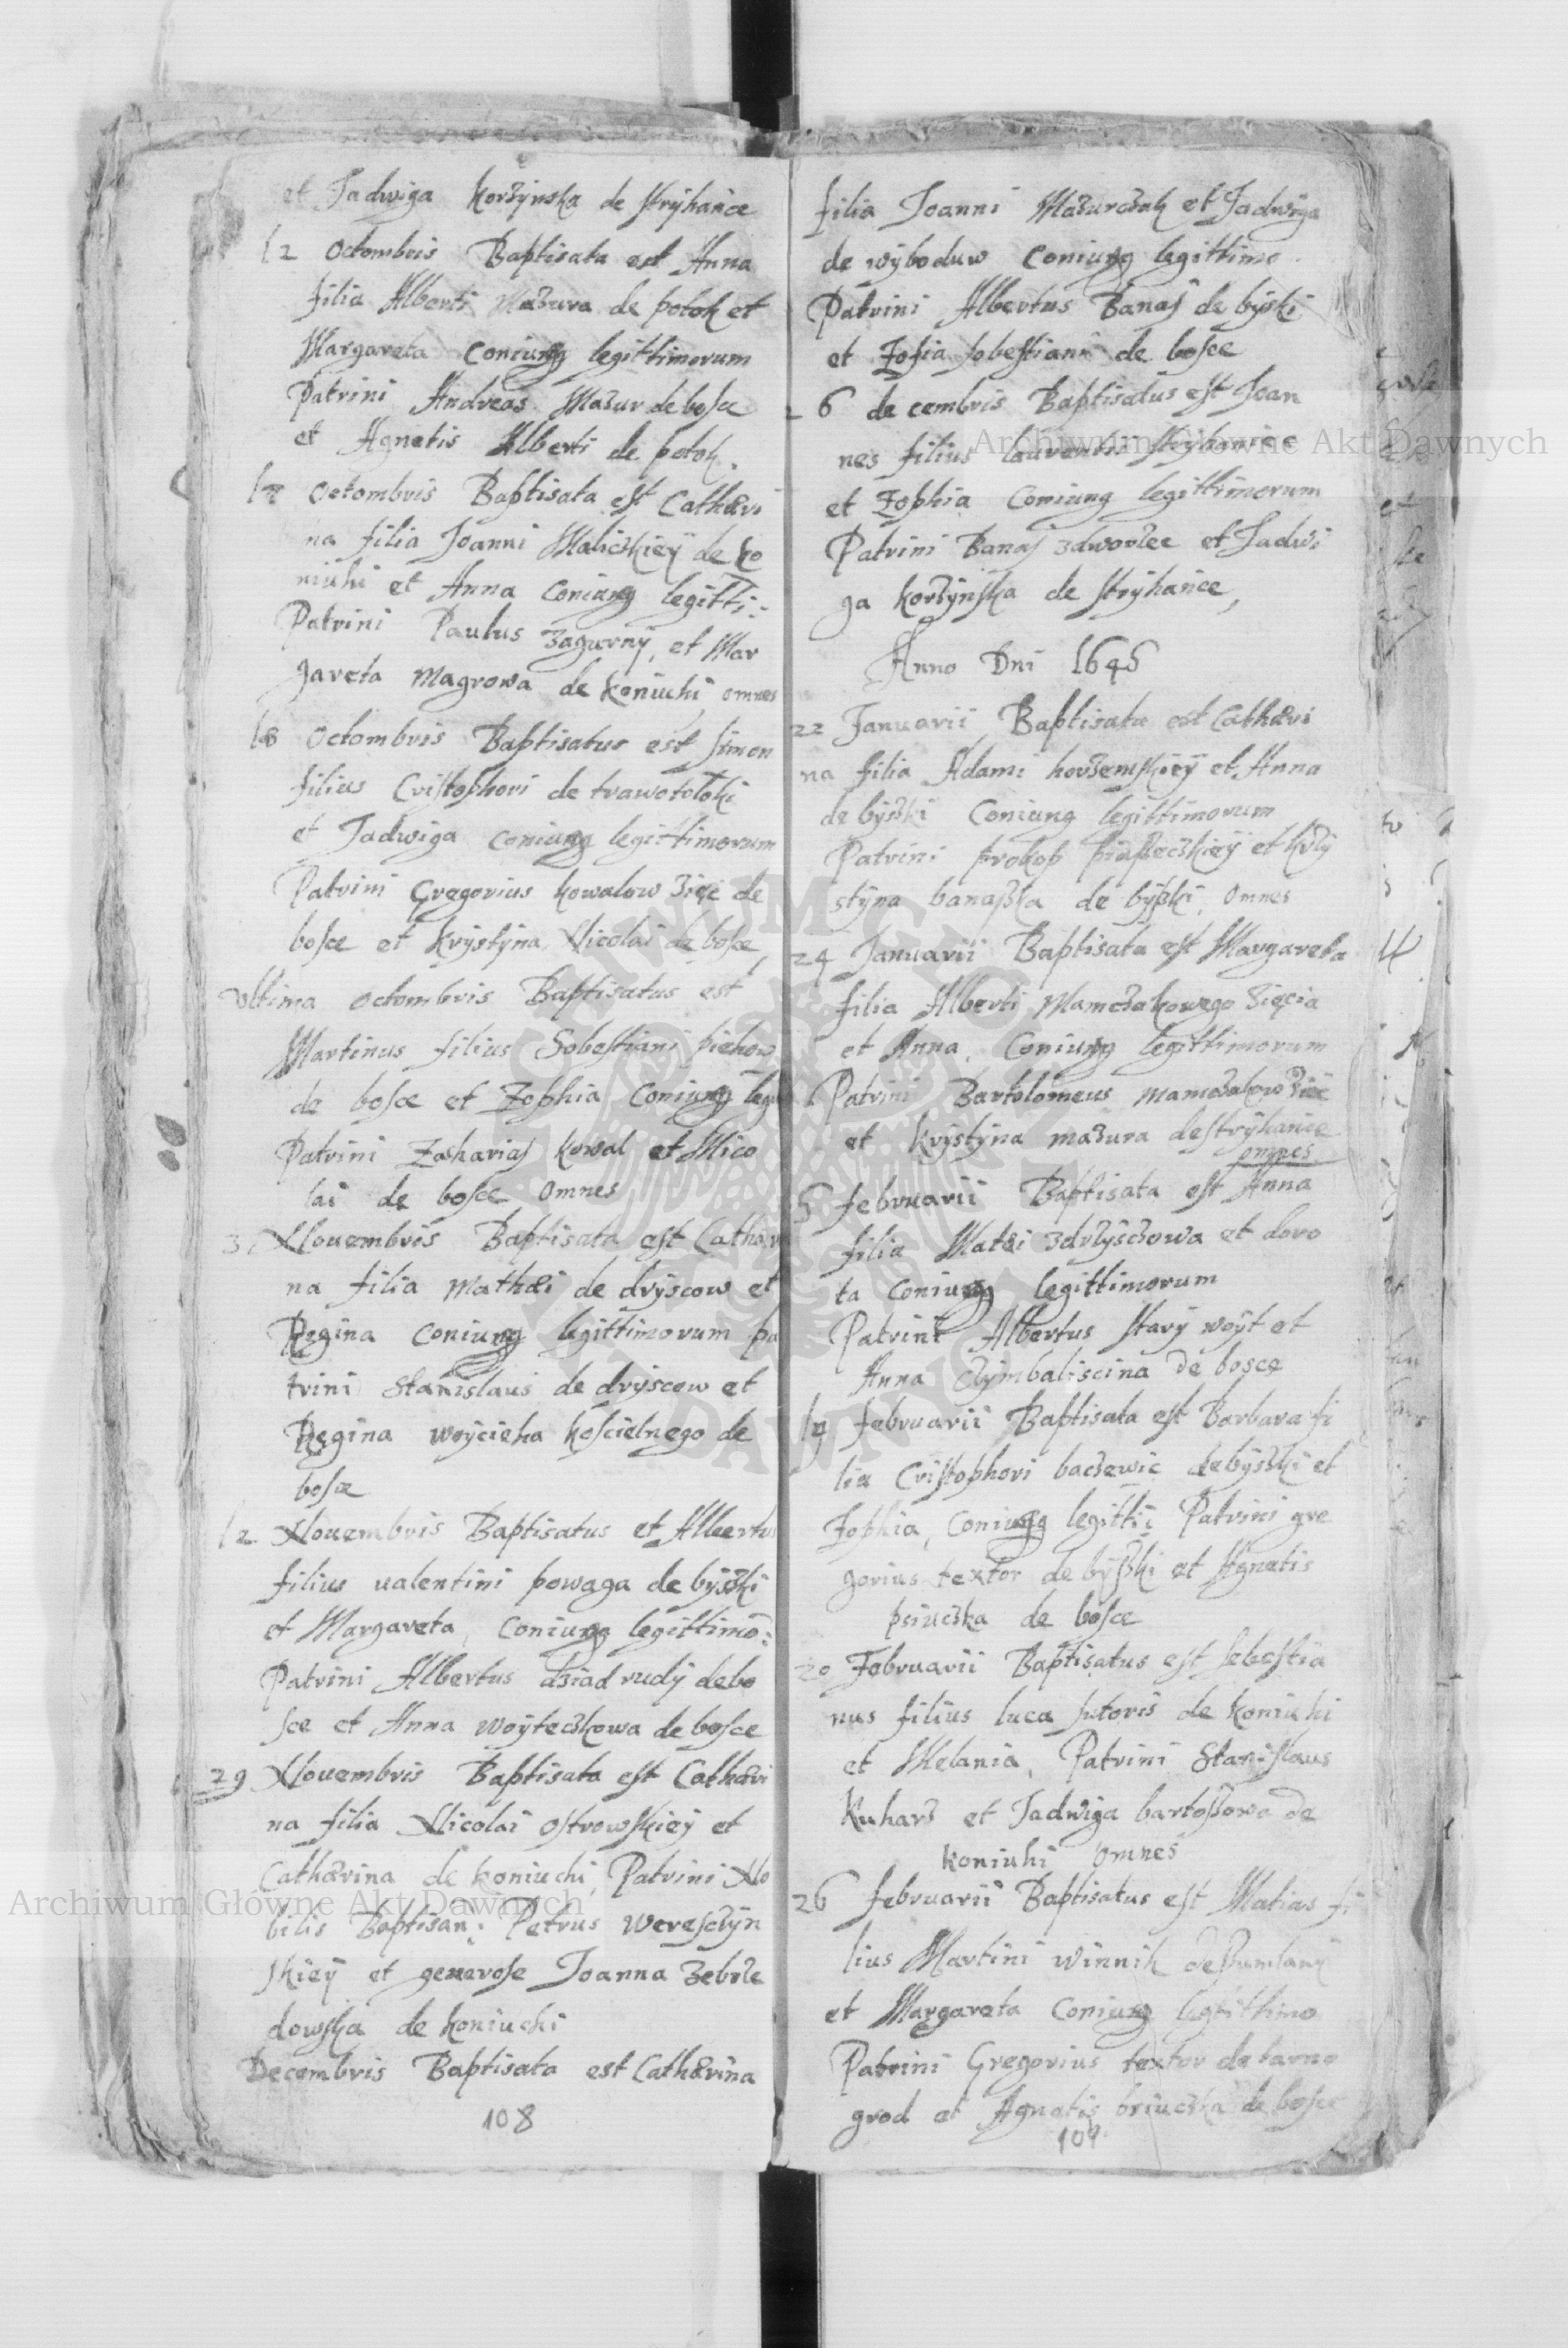 et Jadwiga korzynska de stryhance
12 Octombris Baptisata est Anna
filia Alberti Mazura de potok et
Margareta Coniung legittimorum
Patrini Andreas Mazur de bosce
et Agnetis Alberti de potok.
17 Octombris Baptisata est Cathari
na filia Joanni Maliczkiey de ko
niuhi et Anna Coniung legitti:
Patrini Paulus Zagurny, et Mar
gareta Magrowa de koniuchi, omnes
18 Octombris Baptisatus est Simon
filius Cristophori de trawotoloki
et Jadwiga coniung legittimorum
Patrini Gregorius kowalow Zięć de
bosce et krystyna Nicolai de bosce
Vltima Octombris Baptisatus est
Martinus filius Sobestiani piehow
de bosce et Zophia Coniung legi
Patrini Zacharias kowal et Mico
lai de bosce Omnes
Nouembris Baptisata est Cathari
na filia Mathæi de dryscow et
Regina Coniung legittimorum pa
trini Stanislaus de dryscow et
Regina woyciecha koscielnego de
bosce
12 Nouembris Baptisatus et Albertus
filius ualentini powaga de byszki
et Margareta, Coniung legittimo:
Patrini Albertus dziad rudy de bo
sce et Anna woyteczkowa de bosce
29 Nouembris Baptisata est Cathari
na filia Nicolai Ostrowskiey et
Catharina de koniuchi, Patrini No
bilis Baptisan: Petrus Weresczyn
skiey et generose Joanna Zebrze
dowska de koniuchi
Decembris Baptisata est Catharina
108
filia Joanni Mazurczak et Jadwiga
de wyboduw Coniung legittimo.
Patrini Albertus Banas de byski
et Zofia sobestiani de bosce
26 decembris Baptisatus est Joan
nes filius laurentii stryhaniec
et Zophia Coniung legittimorum
Patrini Banas zdworzec et Jadwi
ga korzynska de stryhance,
Anno Dni 1646
22 Januarii Baptisata est Cathari
na filia Adami horzemskiey et Anna
de byszki Coniung legittimorum
Patrini prokop piaseczkiey et krzy
styna banaszka de byszki, Omnes
24 Januarii Baptisata est Margareta
filia Alberti Mamczakowego Zięcia
et Anna, Coniung legittimorum
Patrini Bartolomeus mamczakow Zięć
et krystyna mazura de stryhance
omnes
5 februarii Baptisata est Anna
filia Matei zdrzyszczowa et doro
ta Coniung legittimorum
Patrini Albertus stary woyt et
Anna Czymbaliscina de bosce
14 februarii Baptisata est Barbara fi
lia Cristophori baczewic de byszki et
Zophia, Coniung legitti: Patrini gre
gorius textor de byszki et Agnetis
psiuczka de bosce
20 Februarii Baptisatus est Sebestia
nus filius luca sutoris de koniuhi
et Melania, Patrini Stanislaus
Kuharz et Jadwiga bartoszowa de
koniuhi omnes
26 februarii Baptisatus est Matias fi
lius Martini winnik de szumlany
et Margareta Coniung legitthimo
Patrini Gregorius textor de tarno
grod et Agnetis de bosce
109
Archiwum Główne Akt Dawnych
Archiwum Główne Akt Dawnych